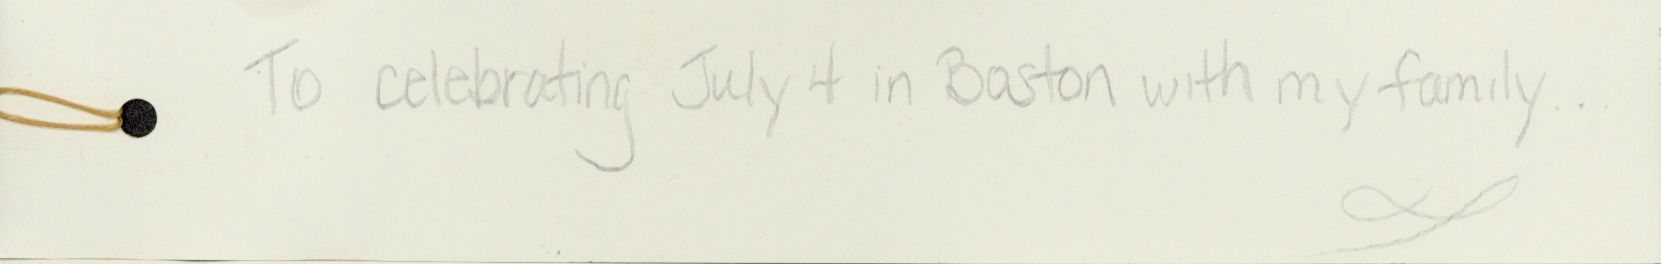 To celebrating July 4 in Boston with my family...